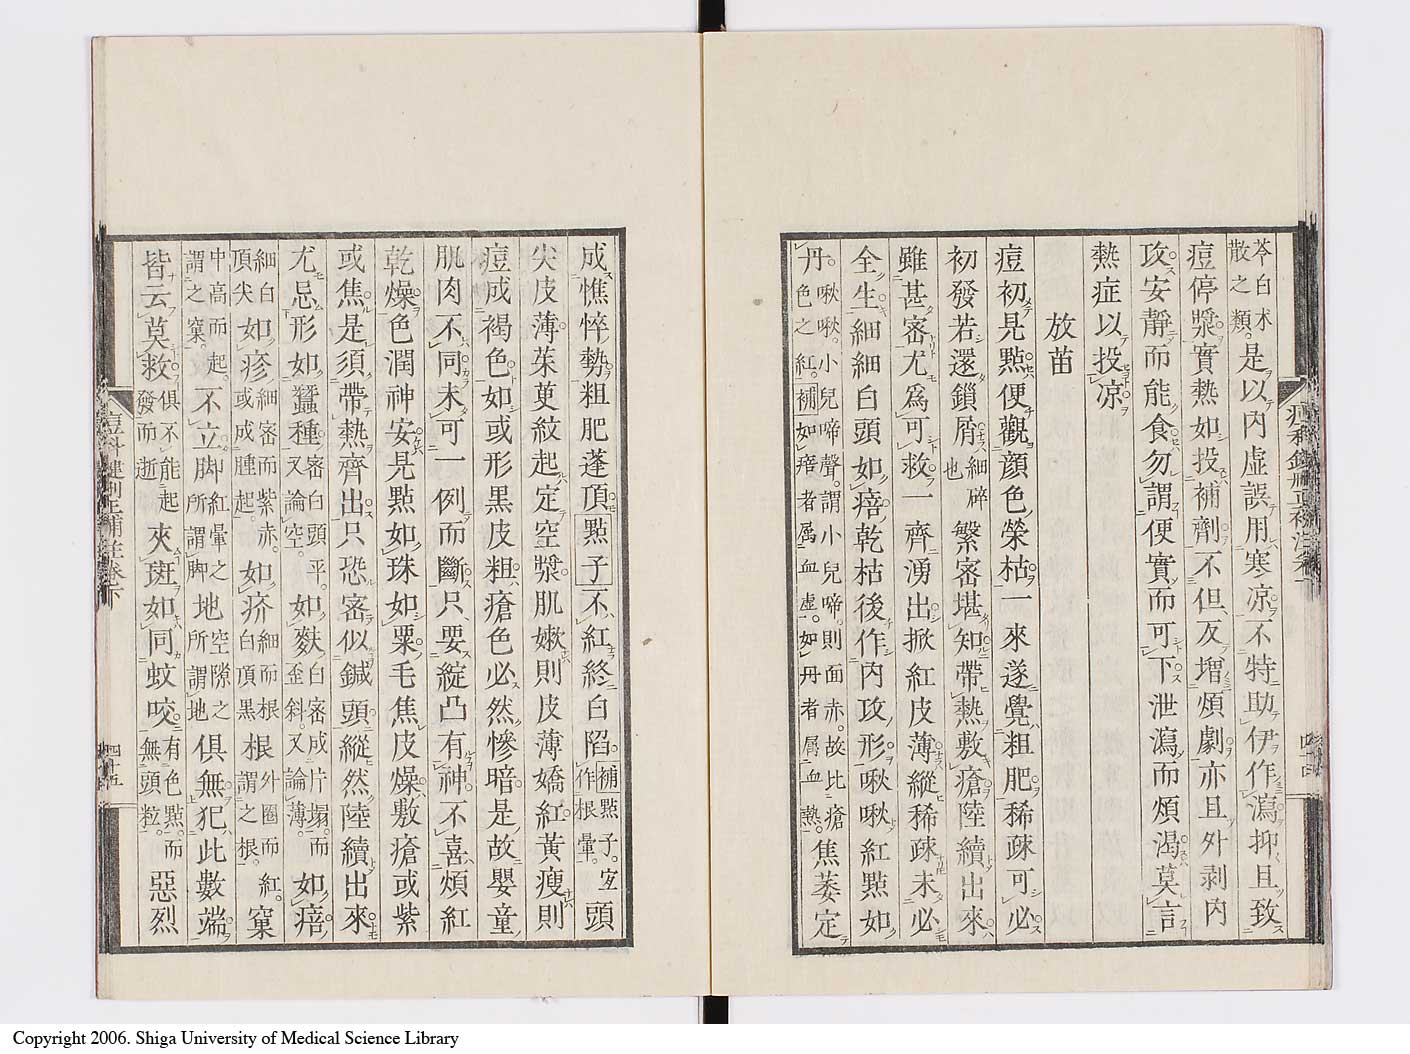 苓白朮散之類。是以內虛誤用寒凉不特助伊作瀉抑且致
痘停漿實熱如投補劑不但反增煩劇亦且外剥内
攻安靜而能食勿謂便實而可下泄瀉而煩渴莫言
熱症以投凉
放苗
痘初見㸃便觀顔色榮枯一來遂覺粗肥稀疎可必
初發若還鎖屑細碎也繁密堪知帶熱敷瘡陸續出來
雖甚密尤爲可救一齊湧出掀紅皮薄縱稀疎未必
全生細細白頭如㾦乾枯後作内攻形啾啾紅㸃如
丹啾啾。小兒啼聲。謂小兒啼。則面赤。故比瘡色之紅。補如㾦者属血虛。如丹者属血熱。焦萎定
成憔悴勢粗肥蓬頂㸃子不紅終白陷補㸃子。宜作根暈。頭
尖皮薄茱萸紋起定空漿肌嫩則皮薄嬌紅黄瘦則
痘成褐色如或形黒皮粗瘡色必然慘暗是故嬰童
肌肉不同未可一例而斷只要綻凸有神不喜煩紅
乾燥色潤神安見㸃如珠如粟毛焦皮燥敷瘡或紫
或焦是須帶熱齊出只恐密似鍼頭縱然陸續出來
尤忌形如蠶種密白頭平。又論空。如麩白密成片塌。而歪斜又論薄。如㾦
細白頂尖如疹細密而紫赤。或成腫起。如疥細而根白頂黒根外圈而紅。謂之根。窠
中高而起。謂之窠。不立脚紅暈之所謂脚地空隙之所謂地俱無犯此數端
皆云莫救俱不能起發而逝夾斑如同蚊咬有色㸃。而無頭粒。惡烈
四十五
Copyright 2006. Shiga University of Medical Science Library